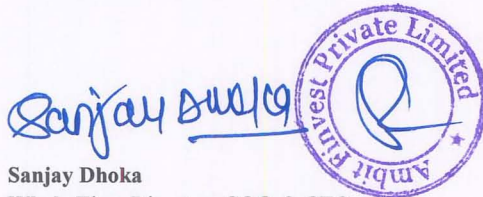 Sanjay Dhoka
Ambit Finvest Private Limited
Sanjay Dhoka